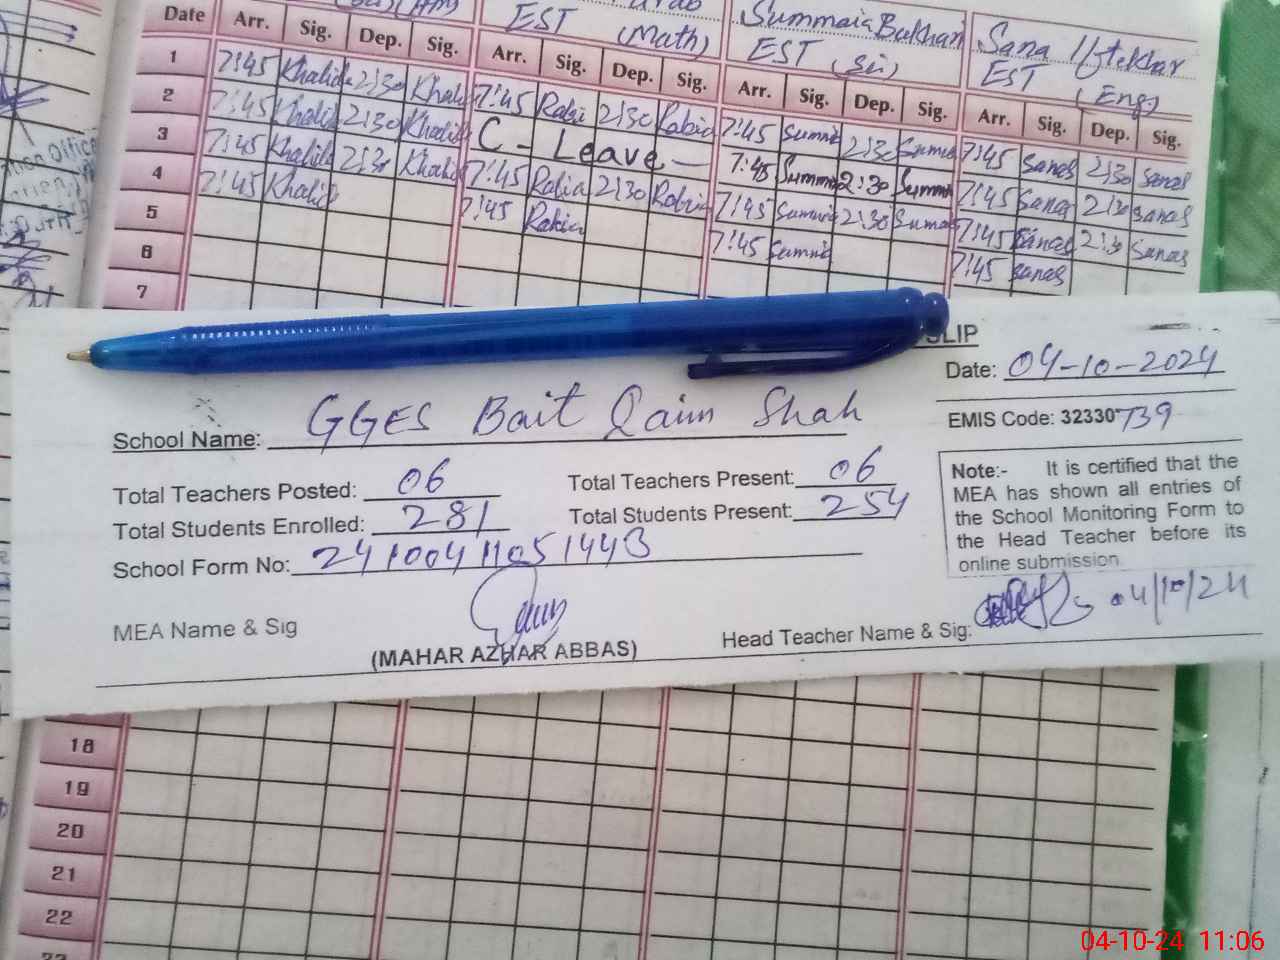 EST (Math)
Summaia Bukhari
EST (Sci)
Sana Iftekhar
EST (Eng)
Date Arr. Sig. Dep. Sig. Arr. Sig. Dep. Sig. Arr. Sig. Dep. Sig. Arr. Sig. Dep. Sig.
1 7:45 Khalid 2:30 Khalid 7:45 Rabi 2:30 Rabia 7:45 Summi 2:30 Summi 7:45 Sanas 2:30 Sanas
2 7:45 Khalid 2:30 Khalid C - Leave - 7:45 Summi 2:30 Summi 7:45 Sanas 2:30 Sanas
3 7:35 Khalid 2:30 Khalid 7:45 Rabia 2:30 Rabia 7:45 Summi 2:30 Summi 7:45 Sanas 2:30 Sanas
4 7:45 Khalid 7:45 Rabia 7:45 Summi 7:45 Sanas
5
6
7
SLIP
Date: 04-10-2024
School Name: GGES Bait Qaim Shah
EMIS Code: 32330739
Total Teachers Posted: 06 Total Teachers Present: 06
Total Students Enrolled: 281 Total Students Present: 254
School Form No: 24100411051443
Note:- It is certified that the
MEA has shown all entries of
the School Monitoring Form to
the Head Teacher before its
online submission.
MEA Name & Sig
(MAHAR AZHAR ABBAS)
Head Teacher Name & Sig: 04/10/24
18
19
20
21
22
04-10-24 11:06